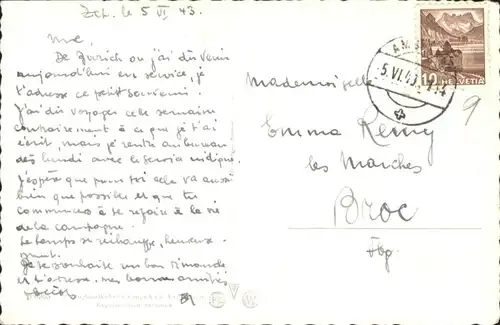 Zch. le 5 VI 43.
De Zurich où j'ai dû venir
aujourd'hui en service, je
t'adresse ce petit souvenir.
J'ai dû voyager cette semaine
contrairement à ce que je t'ai
écrit, mais je rentre au bureau
dès lundi avec le service indiqué.
J'espère que pour toi cela va aussi
bien que possible et que tu
commences à te refaire à la vie
de la campagne.
Le temps se réchauffe, heureuse-
ment.
Je te souhaite un bon dimanche
et mes bonnes amitiés
Mademoiselle
Emma Remy
les Marches
Broc
Fbg.
5.VI.43
12 HELVETIA
9